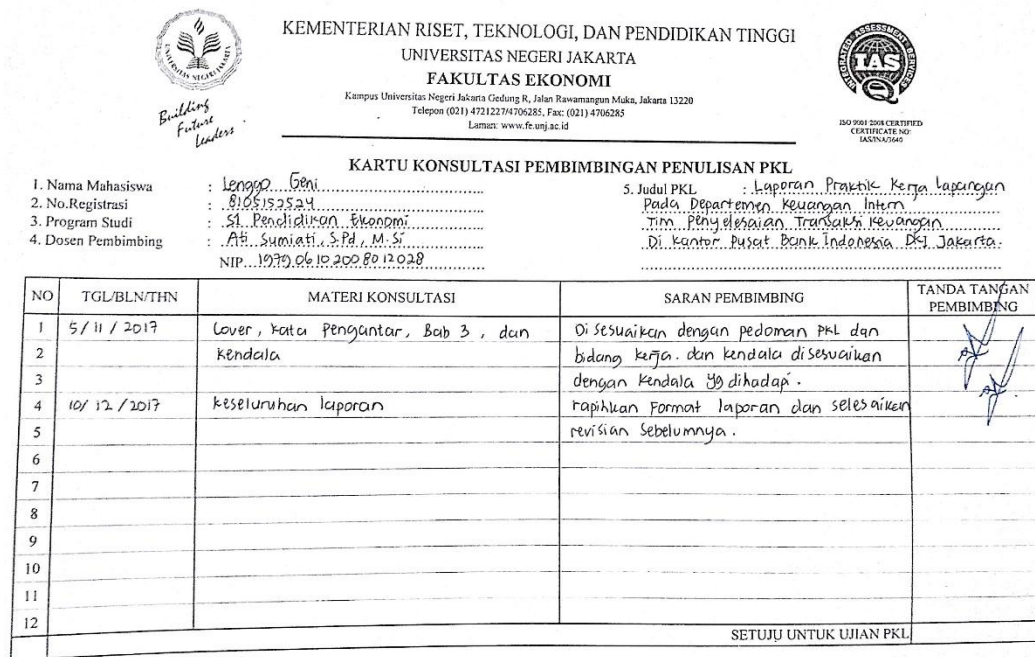 KEMENTERIAN RISET, TEKNOLOGI, DAN PENDIDIKAN TINGGI
UNIVERSITAS NEGERI JAKARTA
FAKULTAS EKONOMI
Kampus Universitas Negeri Jakarta Gedung R, Jalan Rawamangun Muka, Jakarta 13220
Telepon (021) 4721227/4706285, Fax: (021) 4706285
Laman: www.fe.unj.ac.id
Building
Future
Leaders
INTEGRATED ASSESSMENT SERVICES
IAS
ISO 9001:2008 CERTIFIED
CERTIFICATE NO:
IAS/INA/3640
KARTU KONSULTASI PEMBIMBINGAN PENULISAN PKL
1. Nama Mahasiswa : Lenggo Geni
2. No.Registrasi : 8105152524
3. Program Studi : S1 Pendidikan Ekonomi
4. Dosen Pembimbing : Ati Sumiati, S.Pd, M.Si
NIP. 19790610 200801 2028
5. Judul PKL : Laporan Praktik Kerja Lapangan
Pada Departemen Keuangan Intern
Tim Penyelesaian Transaksi Keuangan
Di Kantor Pusat Bank Indonesia DKI Jakarta.
NO TGL/BLN/THN MATERI KONSULTASI SARAN PEMBIMBING TANDA TANGAN PEMBIMBING
1 5/11/2017 Cover, Kata Pengantar, Bab 3, dan Di sesuaikan dengan pedoman PKL dan
2 Kendala bidang kerja. dan kendala disesuaikan
3 dengan kendala yg dihadapi.
4 10/12/2017 Keseluruhan laporan rapihkan Format laporan dan selesaikan
5 revisian Sebelumnya.
6
7
8
9
10
11
12
SETUJU UNTUK UJIAN PKL